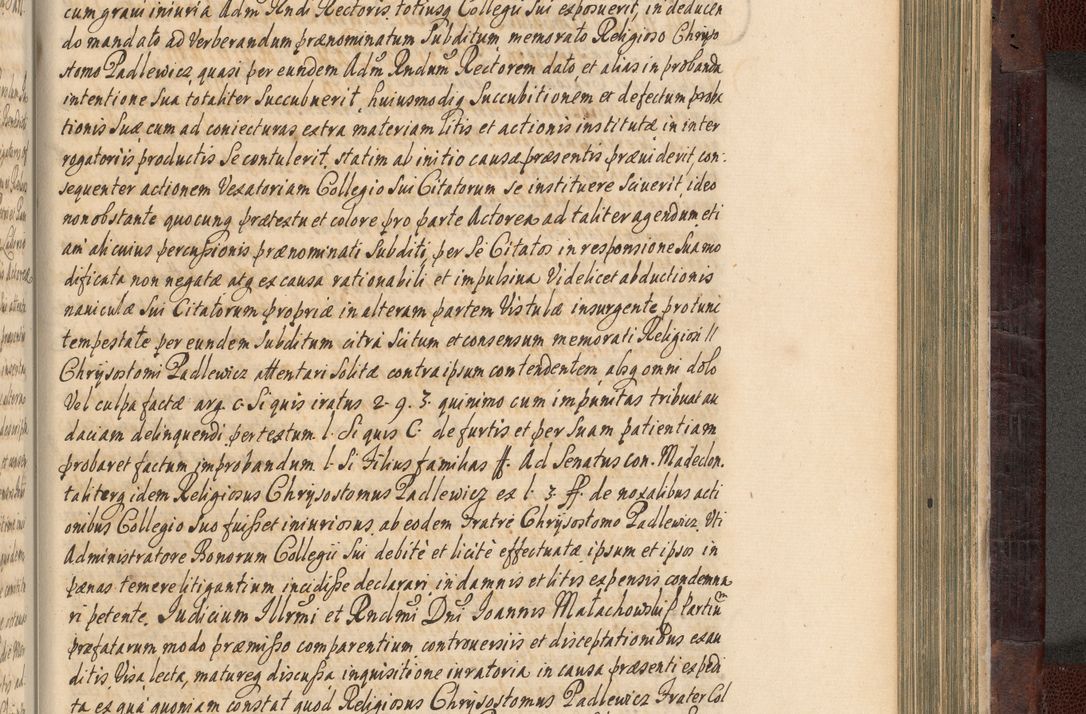 cum gravi iniuria Adm Rndi Rectoris totiusq Collegii Sui exposuerit, in deducen
do mandato ad Verberandum prænominatum Subditum memorato Religioso Chryso
stomo Padlewicz, quasi per eundem Admu Rndum Rectorem dato, et alias in probanda
intentione Sua totaliter Succubuerit, huiusmodiq Succubitionem et defectum proba
tionis Suæ cum ad coniecturas extra materiam litis et actionis institutæ in inter
rogatoriis productis Se contulerit, statim ab initio causæ præsentis præviderit con-
sequenter actionem Vexatoriam Collegio Sui Citatorum se instituere Sciverit ideo
non obstante quocunq prætextu et colore pro parte Actorea ad taliter agendum eti
am alicuius percussionis prænominati Subditi, per Se Citatos in responsione Sua mo
dificata non negatæ atq ex causa rationabili et impulsiva Videlicet abductionis
naviculæ Sui Citatorum propriæ in alteram partem Vistulæ insurgente protunc
tempestate per eundem Subditum citra Scitum et consensum memorati Religiosi
Chrysostomi Padlewicz attentari Solitæ contra ipsum contendentem, absq omni dolo
Vel culpa factæ arg. c. Si quis iratus 2. q. 3. quinimo cum impunitas tribuat au
daciam delinquendi per textum l. Si quis C. de furtis et per Suam patientiam
probaret factum improbandum l. Si Filius familias ff. Ad Senatus con. Macedon.
taliterq idem Religiosus Chrysostomus Padlewicz ex l. 3. ff. de noxalibus acti
onibus Collegio Suo fuisset iniuriosus, ab eodem Fratre Chrysostomo Padlewicz, Uti
Administratore Bonorum Collegii Sui debitè et licitè effectuatæ ipsum et ipsos in
pænas temere litigantium incidisse declarari, in damnis et litis expensis condemna
ri petente. Judicium Illrmi et Rndmi Dni Joannis Małachowski Partium
præfatarum modo præmisso comparentium controversiis et disceptationibus exau
ditis, Visa lecta, matureq discussa inquisitione iuratoria in causa præsenti expedi
ta ex qua quoniam constat quod Religiosus Chrysostomus Padlewicz Frater Col